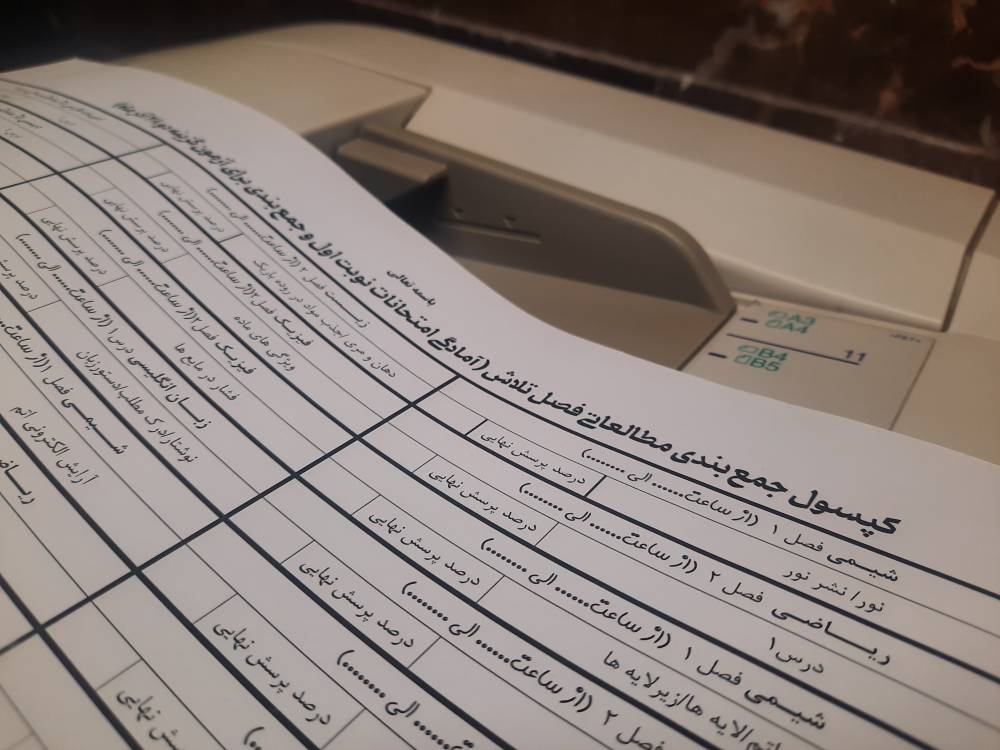 باسمه تعالی
کپسول جمع بندی مطالعاتی فصل تلاش (آمادگی امتحانات نوبت اول و جمع بندی برای آزمون
شیمی فصل ۱ (از ساعت...... الی .......)
درصد پرسش نهایی
نور/ نشر نور
ریـــاضـی فصل ۲ (از ساعت...... الی .......)
درصد پرسش نهایی
درس۱
شیمی فصل ۱ (از ساعت...... الی .......)
درصد پرسش نهایی
اتم/لایه ها/زیرلایه ها
فصل ۲ (از ساعت...... الی .......)
درصد پرسش نهایی
درصد پرسش نهایی
الی .......)
درصد پرسش نهایی
زیـست فصل ۲ (از ساعت...... الی .......)
درصد پرسش نهایی
دهان و مری /جذب مواد در روده باریک
فیزیک فصل ۲ (از ساعت...... الی .......)
درصد پرسش نهایی
ویژگی های ماده
فیزیک فصل ۲ (از ساعت...... الی .......)
درصد پرسش نهایی
فشار در مایع ها
زبـــان انگلیسی درس ۱ (از ساعت...... الی .......)
درصد پرسش
نوشتار/درک مطلب/دستورزبان
شـــیمـی فصل ۱ (از ساعت
آرایش الکترونی اتم
ریـاضـ
A3
A4
11
B4
B5